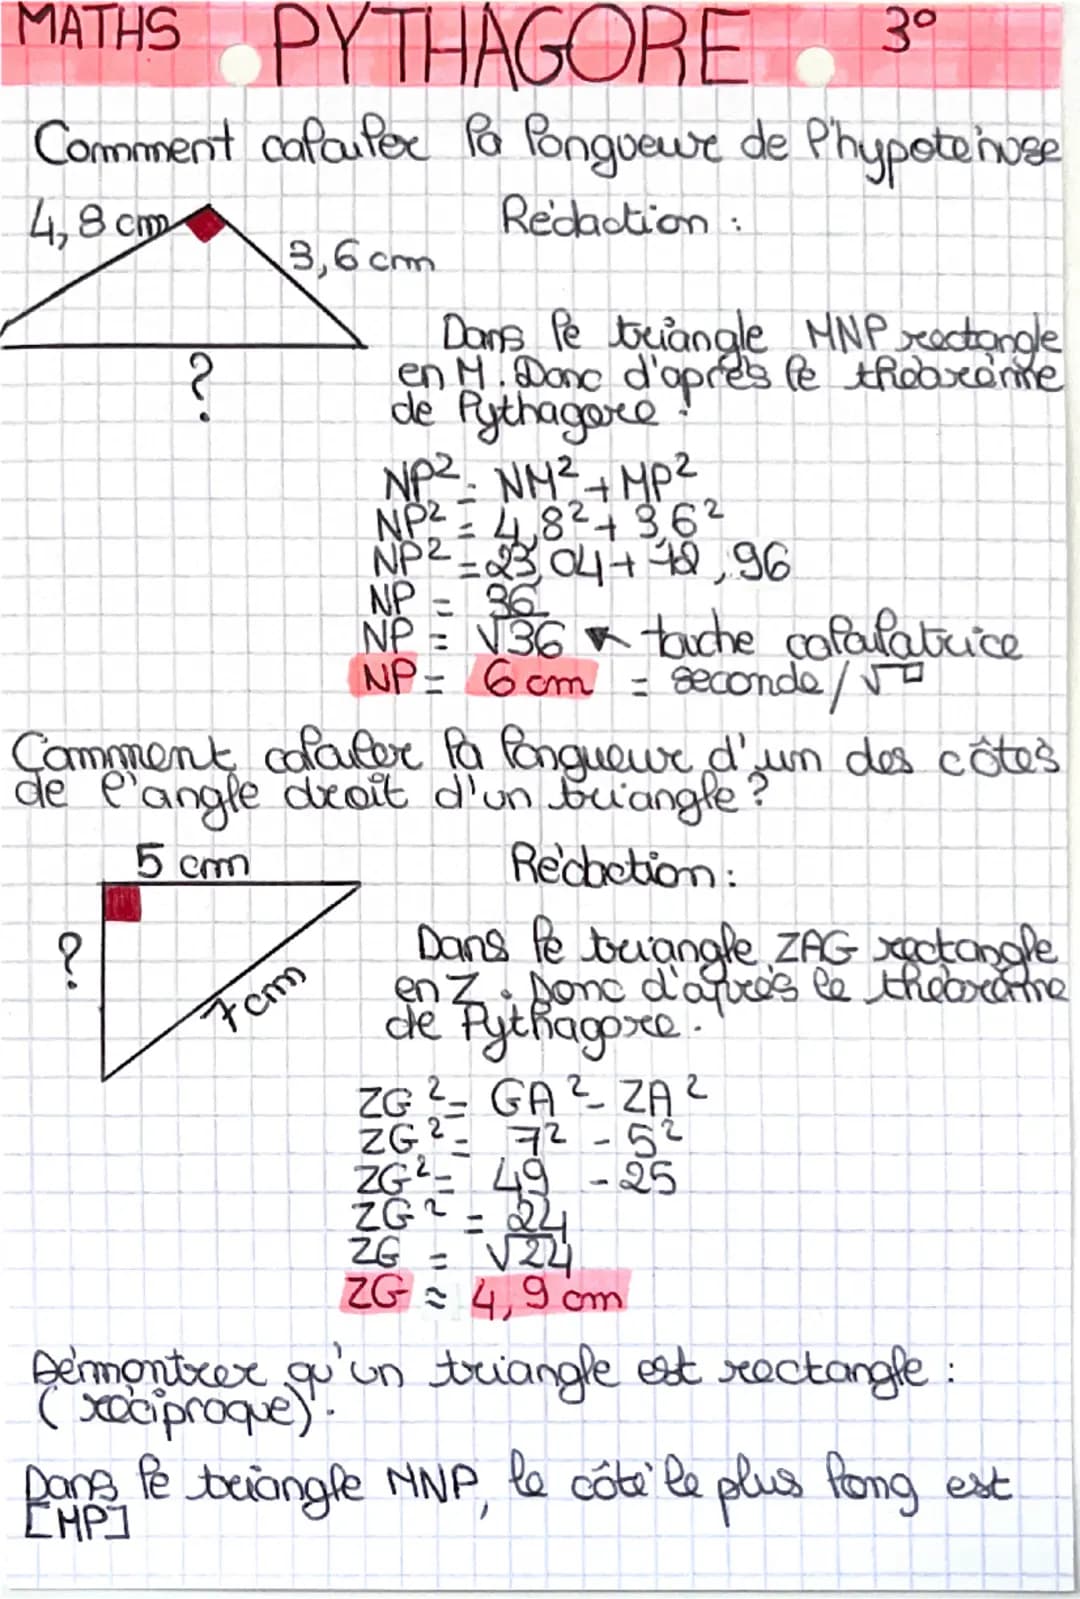 MATHS PYTHAGORE 3°
Comment calculer la longueur de l'hypoténuse
4,8 cm
3,6 cm
?
Rédaction :
Dans le triangle MNP rectangle
en M. Donc d'après le théorème
de Pythagore :
NP² = NM² + MP²
NP² = 4,8² + 3,6²
NP² = 23,04 + 12,96
NP = 36
NP = √36 ← touche calculatrice
NP = 6 cm = seconde / √□
Comment calculer la longueur d'un des côtés
de l'angle droit d'un triangle ?
5 cm
?
7 cm
Rédaction :
Dans le triangle ZAG rectangle
en Z. Donc d'après le théorème
de Pythagore.
ZG² = GA² - ZA²
ZG² = 7² - 5²
ZG² = 49 - 25
ZG² = 24
ZG = √24
ZG ≈ 4,9 cm
Démontrer qu'un triangle est rectangle :
(réciproque).
Dans le triangle MNP, le côté le plus long est
[MP]